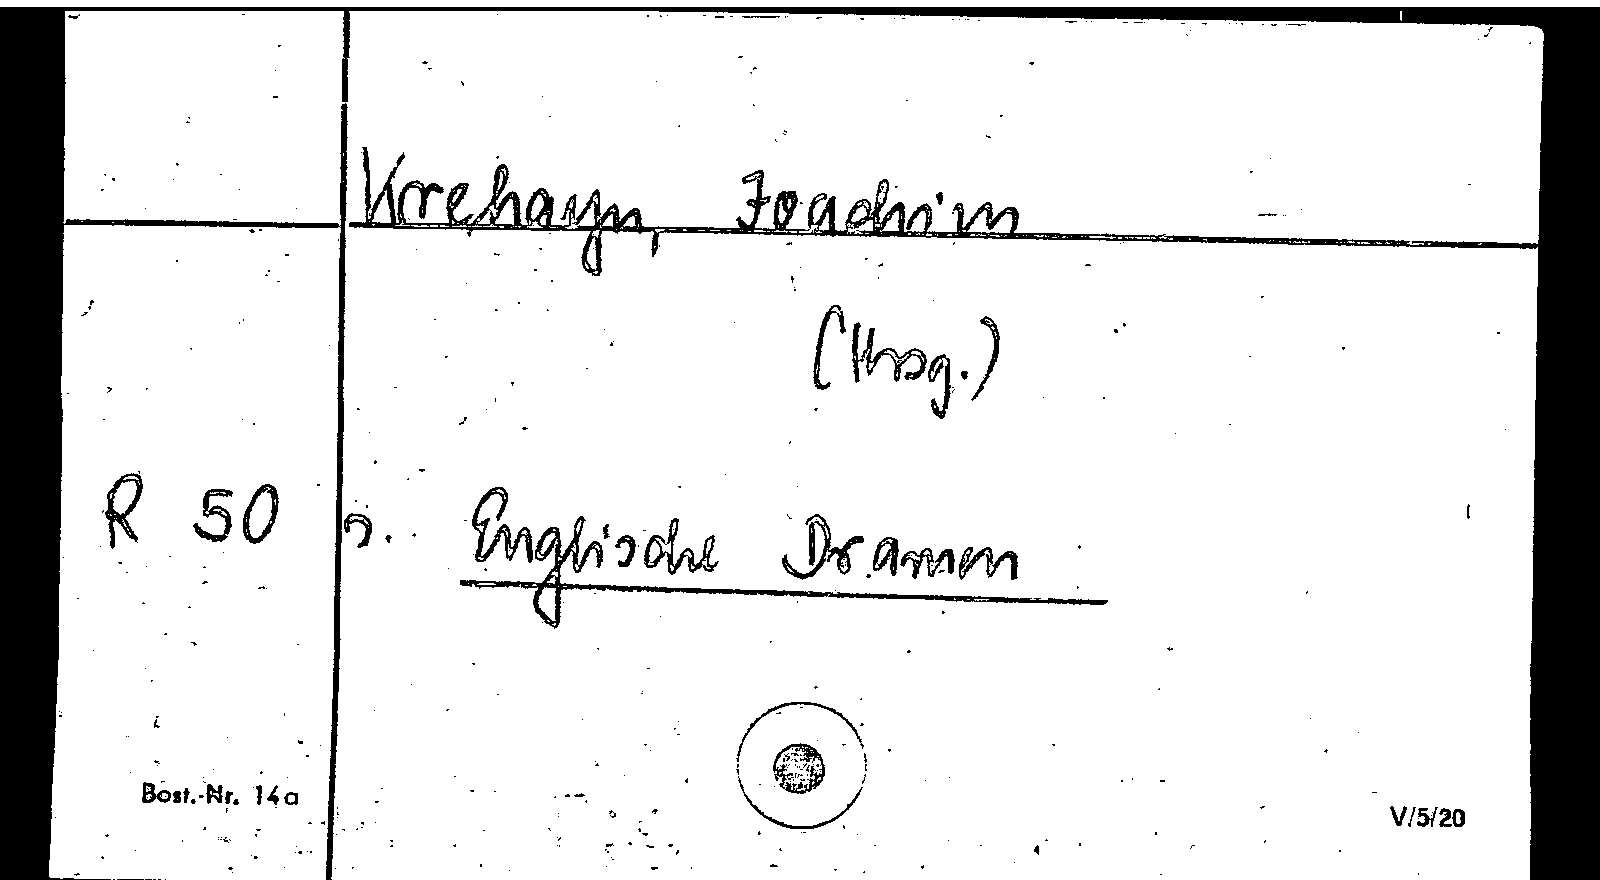 Krehayn, Joachim
(Hrsg.)
R 50 s. Englische Dramen
Best.-Nr. 14a
V/5/20